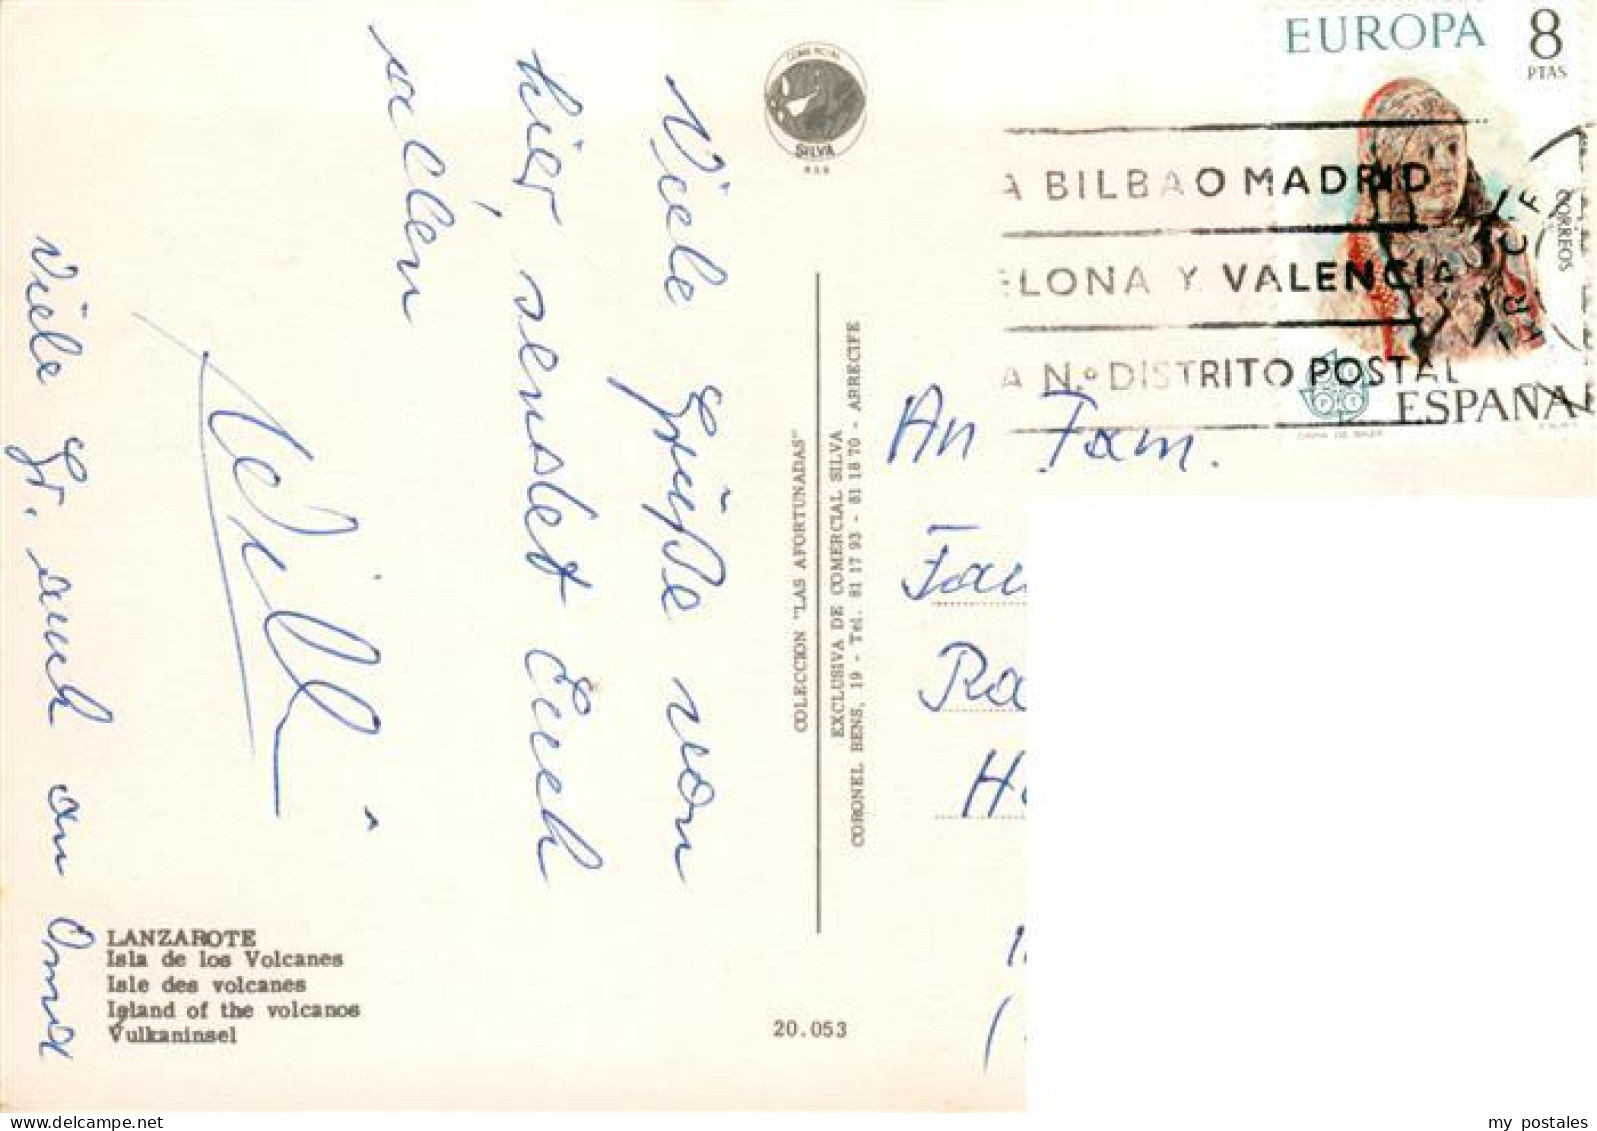 Viele Grüße von
hier, sendet Euch
allen
Willi
Viele Gr. auch an Oma
LANZAROTE
Isla de los Volcanes
Isle des volcanes
Island of the volcanos
Vulkaninsel
COMERCIAL
SILVA
COLECCION "LAS AFORTUNADAS"
EXCLUSIVA DE COMERCIAL SILVA
CORONEL BENS, 19 - Tel. 81 17 93 - 81 18 70 - ARRECIFE
20.053
EUROPA 8
PTAS
CORREOS
ESPAÑA
DAMA DE BAZA
A BILBAO MADRID
ELONA Y VALENCIA
A N.º DISTRITO POSTAL
An Fam.
my postales